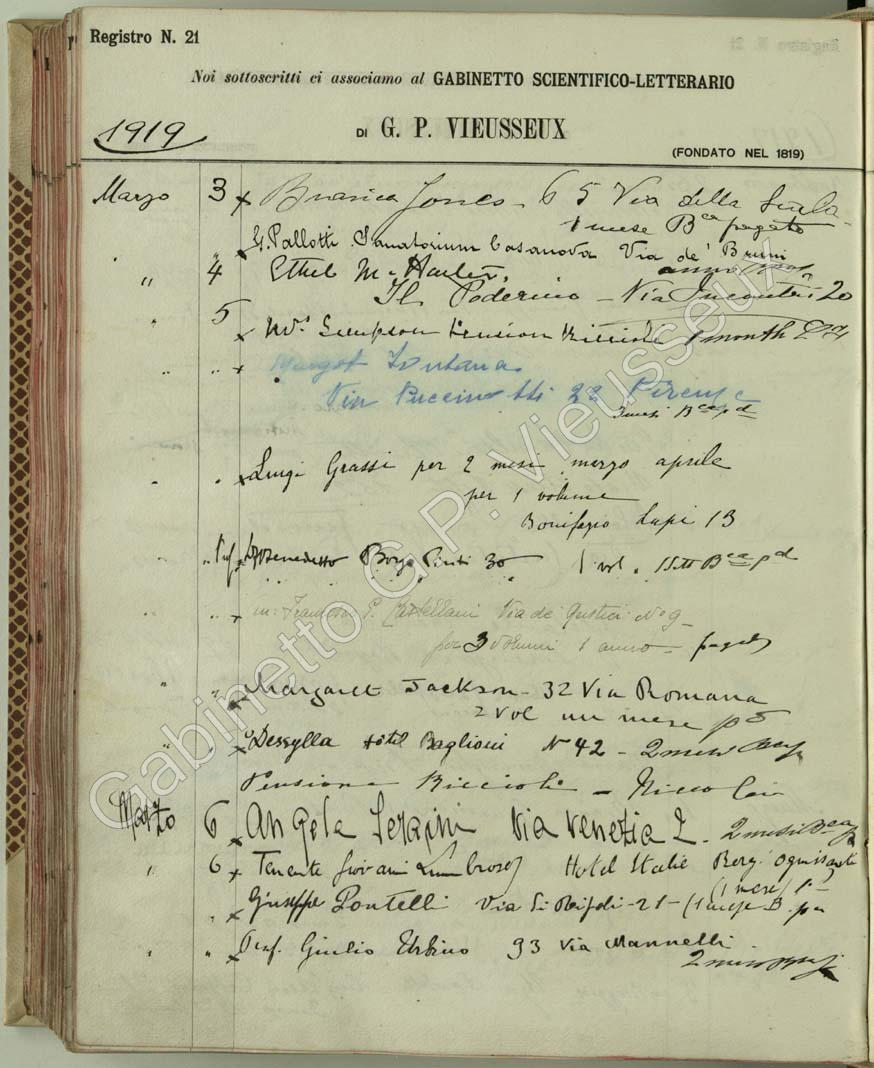 Registro N. 21
Noi sottoscritti ci associamo al GABINETTO SCIENTIFICO-LETTERARIO
1919
DI G. P. VIEUSSEUX
(FONDATO NEL 1819)
Marzo 3 x Jones - 65 Via della Scala
1 mese Bca pagato
x G. Pallotti Sanatorium Casanova Via de' Bruni
" 4 Ethel Mc
Il Poderino - Via Incontri 20
" 5 x Mrs Simpson Pension Riccioli 1 month
" " x Margot Fontana
Via Puccinotti 22 Firenze
Bca pd
" " x Luigi Grassi per 2 mesi marzo aprile
per 1 volume
Bonifazio Lupi 13
" Prof. Benedetto Borgo Pinti 30 1 vol. Bca pd
" " x in: Francesco P. Castellani Via de' Gustici No 9
per 3 volumi 1 anno - pagato
" " x Margaret Jackson - 32 Via Romana
2 vol un mese pd
" " x Dessylla Hôtel Baglioni N 42 - 2 mesi
Pensione Riccioli -
Marzo 6 x Angela Serapini Via Venezia 2 - 2 mesi Bca
" 6 x Tenente Giovanni Lumbroso Hotel Italie Borg. Ognissanti
(1 mese)
" x Giuseppe Pontelli Via di Ripoli - 21 - (1 mese B. pa
" " x Prof. Giulio Urbino 93 Via Mannelli
2 mesi
Gabinetto G.P. Vieusseux